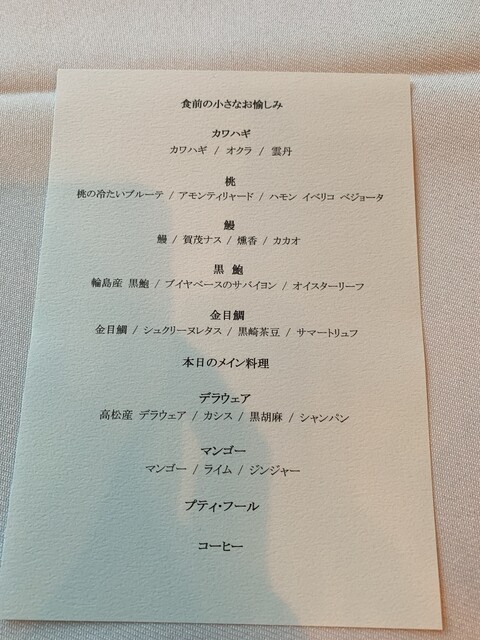 食前の小さなお愉しみ
カワハギ
カワハギ / オクラ / 雲丹
桃
桃の冷たいブルーテ / アモンティリャード / ハモン イベリコ ベジョータ
鰻
鰻 / 賀茂ナス / 燻香 / カカオ
黒 鮑
輪島産 黒鮑 / ブイヤベースのサバイヨン / オイスターリーフ
金目鯛
金目鯛 / シュクリーヌレタス / 黒崎茶豆 / サマートリュフ
本日のメイン料理
デラウェア
高松産 デラウェア / カシス / 黒胡麻 / シャンパン
マンゴー
マンゴー / ライム / ジンジャー
プティ・フール
コーヒー